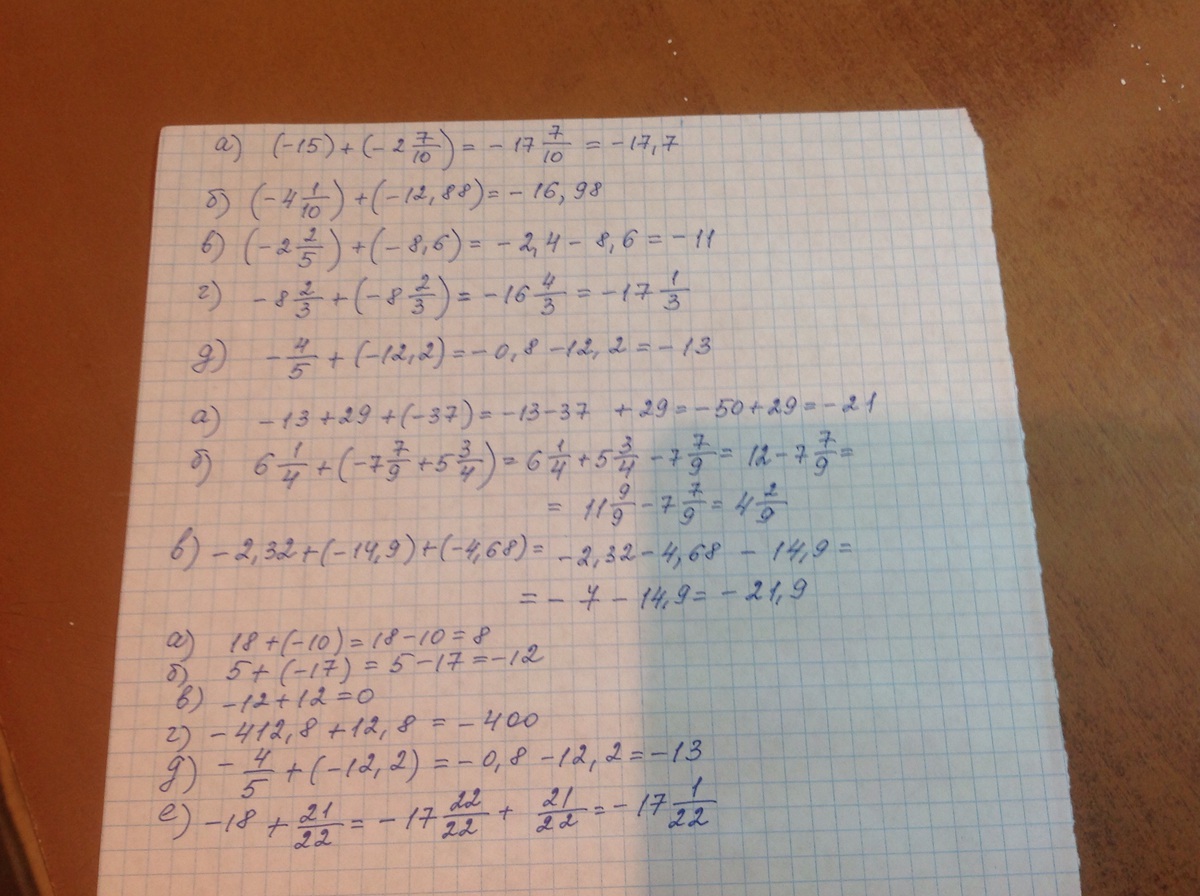 а) (-15)+(-2 7/10)= -17 7/10 = -17,7
б) (-4 1/10)+(-12,88)= -16,98
в) (-2 2/5)+(-8,6)= -2,4-8,6=-11
г) -8 2/3+(-8 2/3)= -16 4/3= -17 1/3
д) -4/5+(-12,2)=-0,8-12,2=-13
а) -13+29+(-37)=-13-37 +29=-50+29=-21
б) 6 1/4+(-7 7/9+5 3/4)= 6 1/4+5 3/4-7 7/9= 12-7 7/9=
= 11 9/9-7 7/9= 4 2/9
в) -2,32+(-14,9)+(-4,68)= -2,32-4,68 -14,9=
=-7-14,9= -21,9
а) 18+(-10)=18-10=8
б) 5+(-17)=5-17=-12
в) -12+12=0
г) -412,8+12,8=-400
д) -4/5+(-12,2)=-0,8-12,2=-13
е) -18+21/22=-17 22/22+21/22=-17 1/22